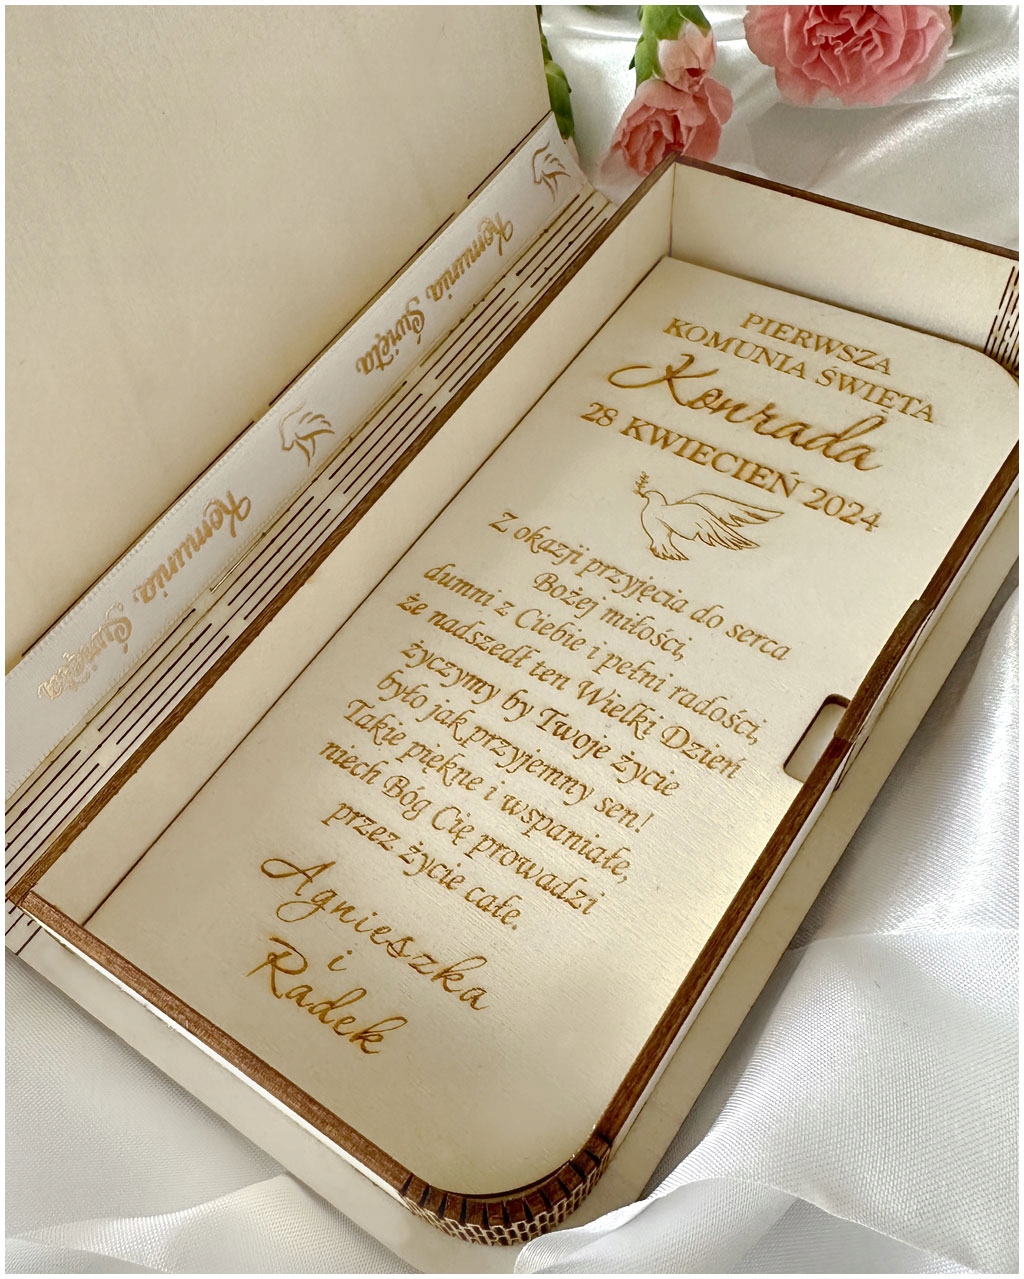 Komunia Święta
Komunia Święta
PIERWSZA
KOMUNIA ŚWIĘTA
Konrada
28 KWIECIEŃ 2024
Z okazji przyjęcia do serca
Bożej miłości,
dumni z Ciebie i pełni radości,
że nadszedł ten Wielki Dzień
życzymy by Twoje życie
było jak przyjemny sen!
Takie piękne i wspaniałe,
niech Bóg Cię prowadzi
przez życie całe.
Agnieszka
i
Radek